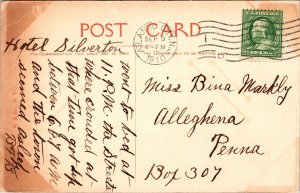 POST CARD
SEP 5
4-PM
1910
Hotel Silverton
went to bed at
11. P.M. the Streets
were crowded at
that time got up
between 6 & 7 A.M.
and the town
seemed asleep
Miss Bina Markly
Alleghena
Penna
Box 307